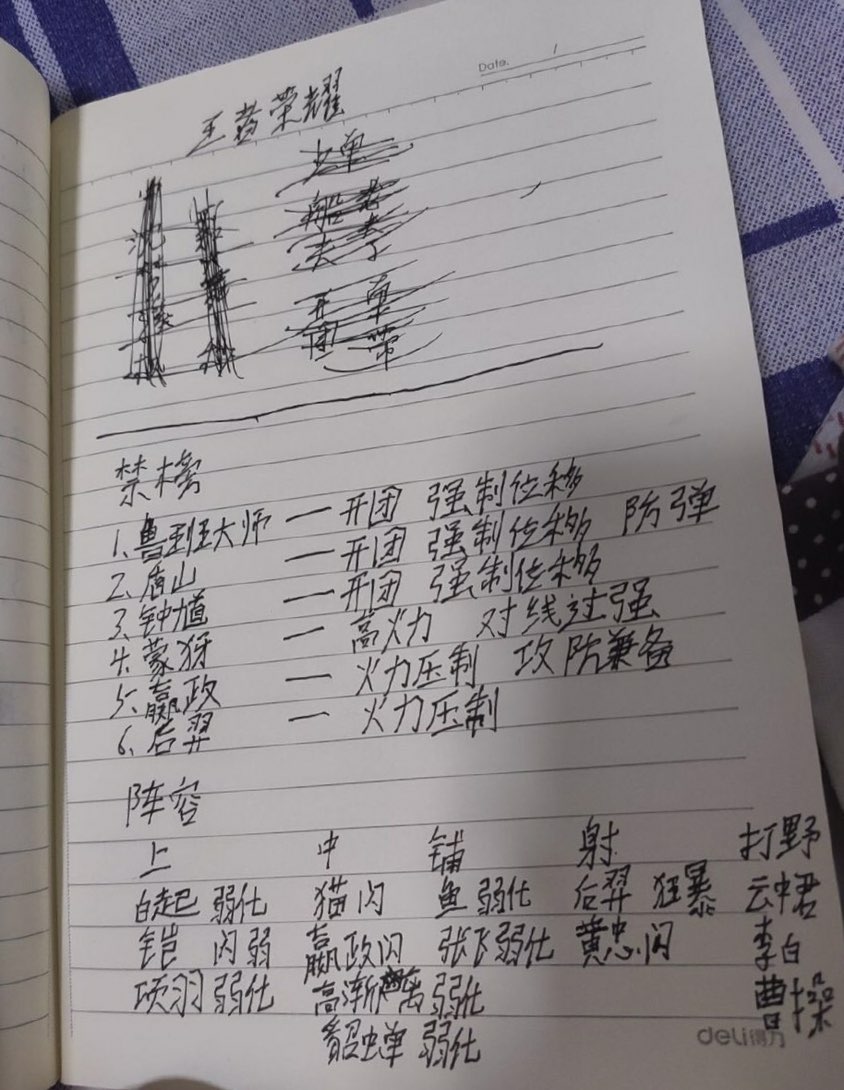 Date.
王者荣耀
禁榜
1、鲁班大师 — 开团 强制位移
2、盾山 — 开团 强制位移 防弹
3、钟馗 — 开团 强制位移
4、蒙犽 — 高火力 对线过强
5、嬴政 — 火力压制 攻防兼备
6、后羿 — 火力压制
阵容
上 中 铺 射 打野
白起 弱化 猫闪 鱼 弱化 后羿 狂暴 云中君
铠 闪弱 嬴政闪 张飞弱化 黄忠闪 李白
项羽弱化 高渐离弱化 曹操
貂蝉 弱化
deli得力